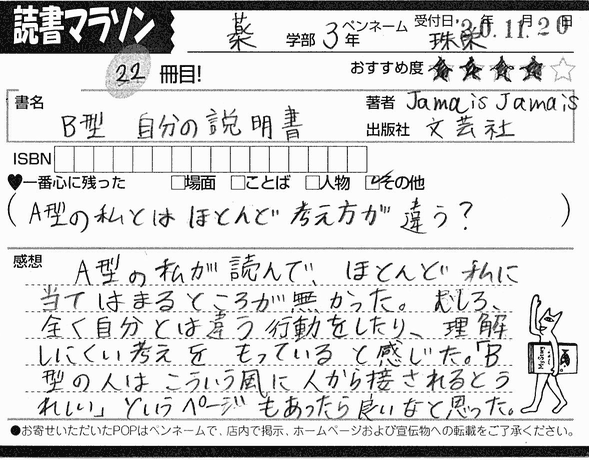 読書マラソン
薬 学部 3年 ペンネーム 珠栄 受付日 '20年11月20日
22 冊目! おすすめ度 ★★★★☆
書名 B型 自分の説明書
著者 Jamais Jamais
出版社 文芸社
ISBN
♥一番心に残った □場面 □ことば □人物 ☑その他
(A型の私とは ほとんど 考え方が 違う?)
感想
A型の私が読んで、ほとんど私に
当てはまるところが無かった。むしろ、
全く自分とは違う行動をしたり、理解
しにくい考えを もっていると感じた。「B
型の人は こういう風に 人から接されるとう
れしい」というページ もあったら良いなと思った。
●お寄せいただいたPOPはペンネームで、店内で掲示、ホームページおよび宣伝物への転載をご了承ください。